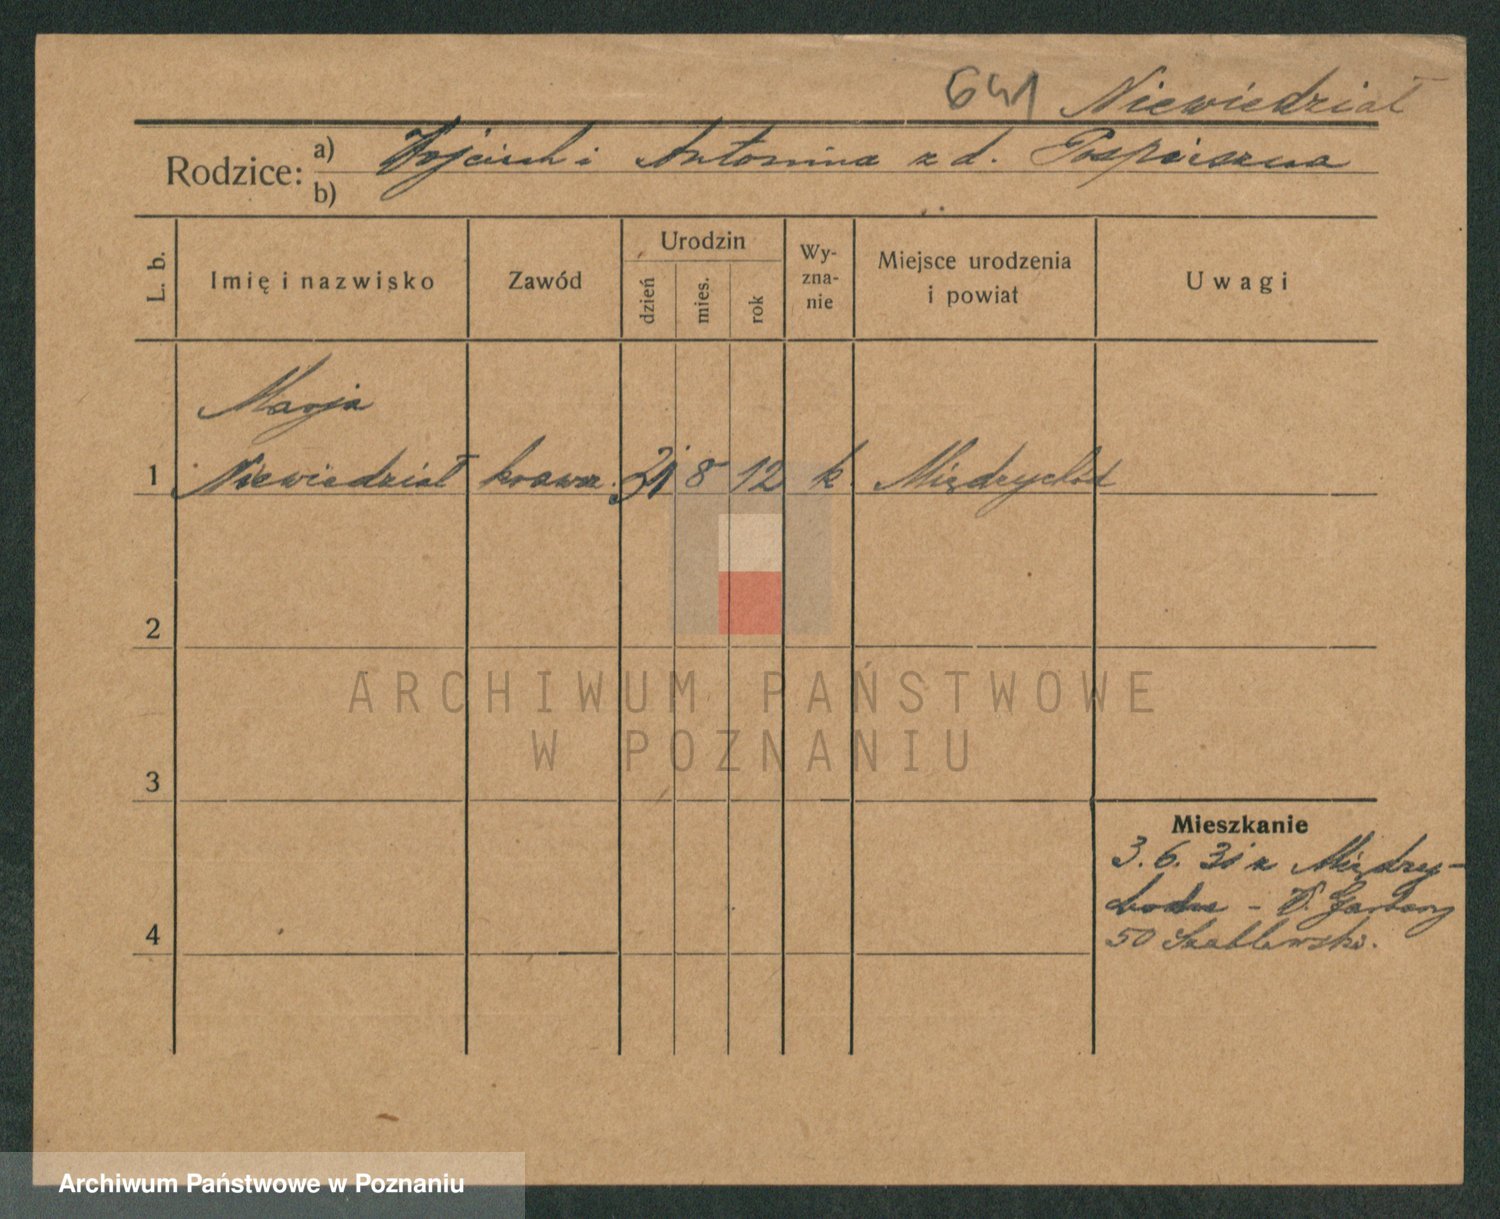 641 Niewiedział
Rodzice: a) Wojciech i Antonina z d. Pospieszna
b)
L. b.
Imię i nazwisko
Zawód
Urodzin
dzień
mies.
rok
Wy-
zna-
nie
Miejsce urodzenia
i powiat
Uwagi
Marja
1 Niewiedział krawcz. 31 8 12 k. Międzychód
2
ARCHIWUM PAŃSTWOWE
W POZNANIU
3
Mieszkanie
3. 6. 31 z Między-
chodu - W. Garbary
4
50 Szablewski.
Archiwum Państwowe w Poznaniu